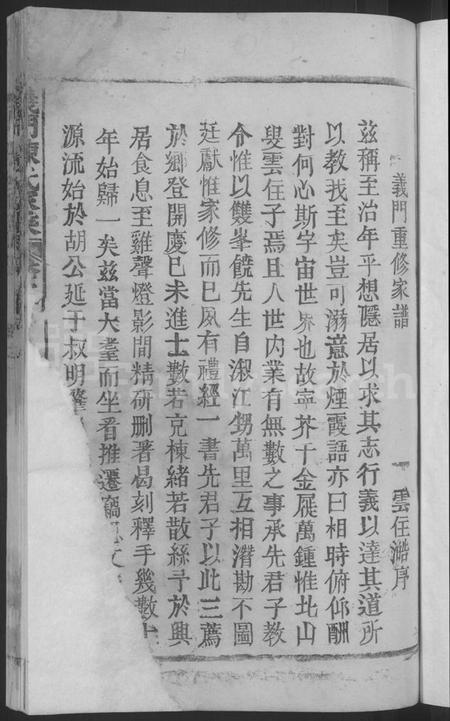 義門重修家譜 雲住澥序
茲稱至治年乎想隱居以求其志行義以達其道所
以教我至矣豈可溺意於煙霞語亦曰相時俯仰酬
對何必斯字宙世界也故寧芥千金屣萬鍾惟此山
叟雲住子焉且人世内業有無數之事承先君子教
令惟以雙峯饒先生自溆江甥萬里互相潛勘不圖
廷獻惟家修而已夙有禮經一書先君子以此三薦
於鄉登開慶巳未進士數若克棟緒若散絲予於興
居食息至雞聲燈影間精研刪著曷刻釋手幾數十
年始歸一矣茲當大耋而坐看推遷竊
源流始於胡公延于叔明
義門陳氏家